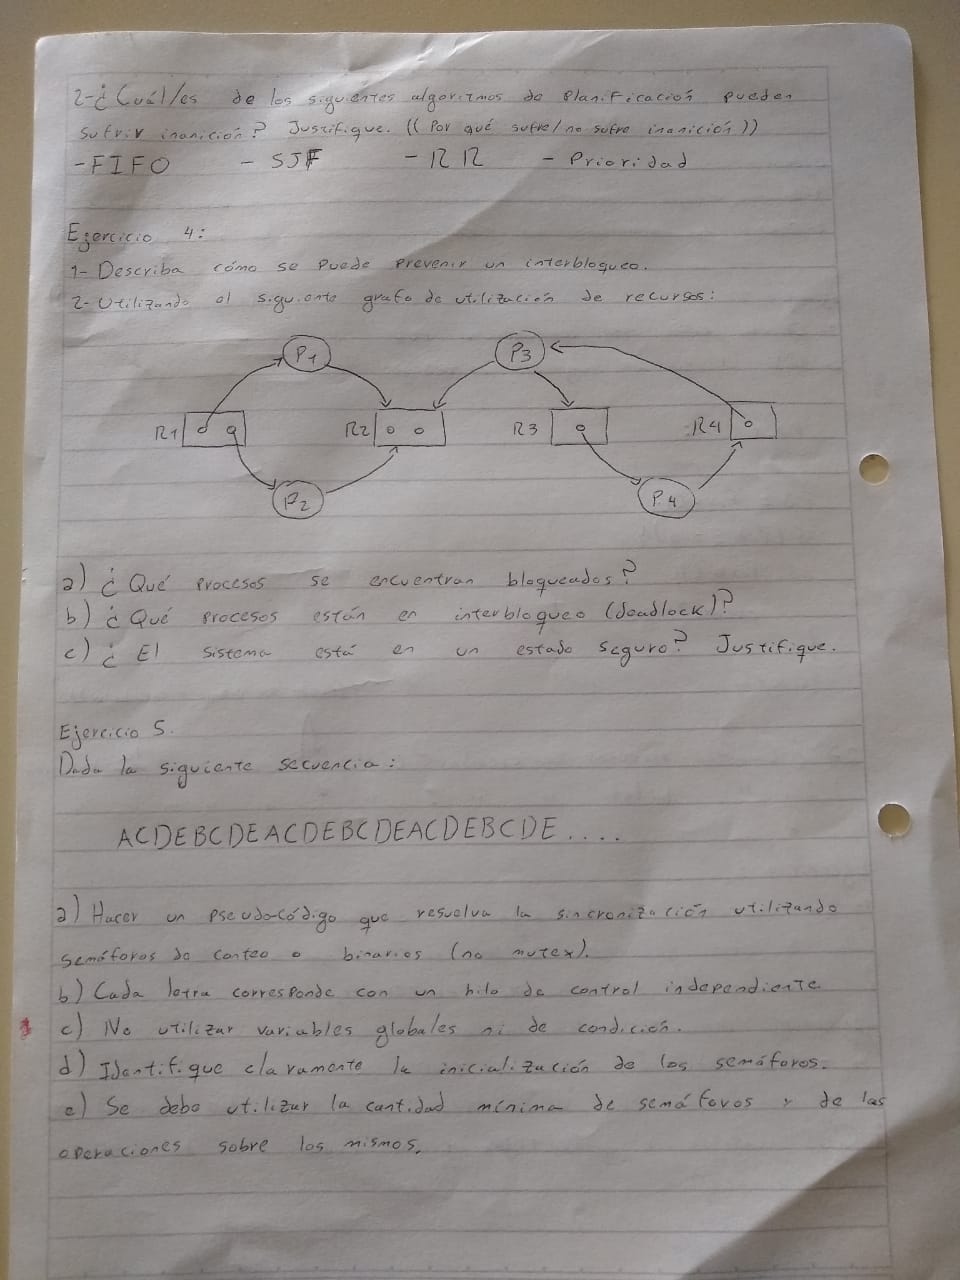 2-¿Cuál/es de los siguientes algoritmos de Planificación pueden
sufrir inanición? Justifique. ((Por qué sufre/no sufre inanición))
-FIFO - SJF - RR - Prioridad
Ejercicio 4:
1- Describa cómo se puede prevenir un interbloqueo.
2- Utilizando el siguiente grafo de utilización de recursos:
P1 P3
R1 R2 R3 R4
P2 P4
a) ¿Qué procesos se encuentran bloqueados?
b) ¿Qué procesos están en interbloqueo (deadlock)?
c) ¿El sistema está en un estado seguro? Justifique.
Ejercicio 5.
Dada la siguiente secuencia:
ACDEBCDEACDEBCDEACDEBCDE....
a) Hacer un pseudo-código que resuelva la sincronización utilizando
semáforos de conteo o binarios (no mutex).
b) Cada letra corresponde con un hilo de control independiente
c) No utilizar variables globales ni de condición.
d) Identifique claramente la inicialización de los semáforos.
e) Se debe utilizar la cantidad mínima de semáforos y de las
operaciones sobre los mismos.